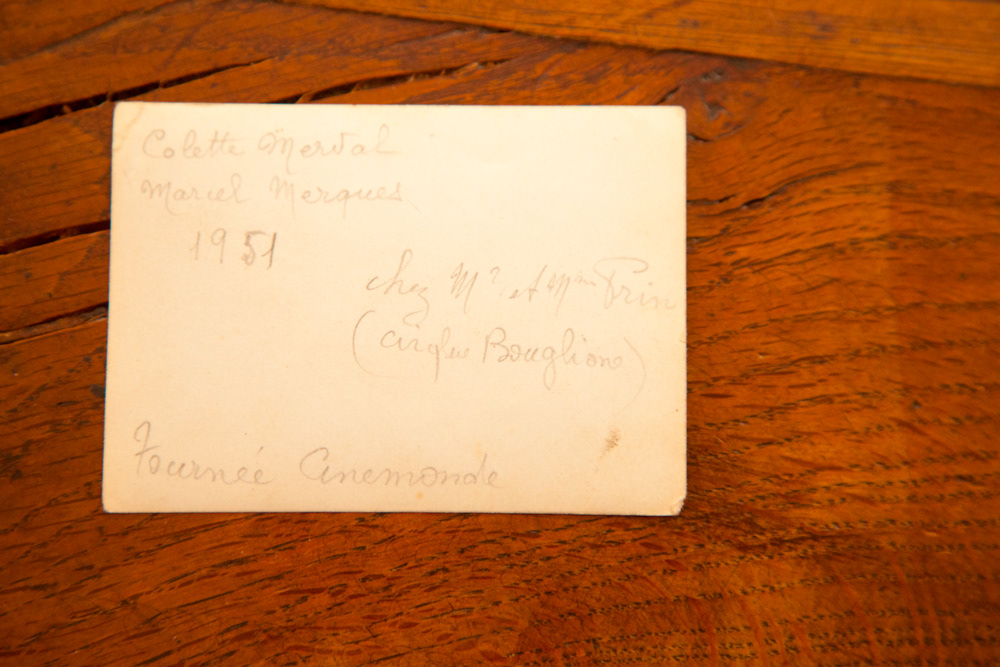 Colette Merval
Marcel Merques
1951
chez Mr et Mme Prin
(cirque Bouglione)
Tournée Cinemonde